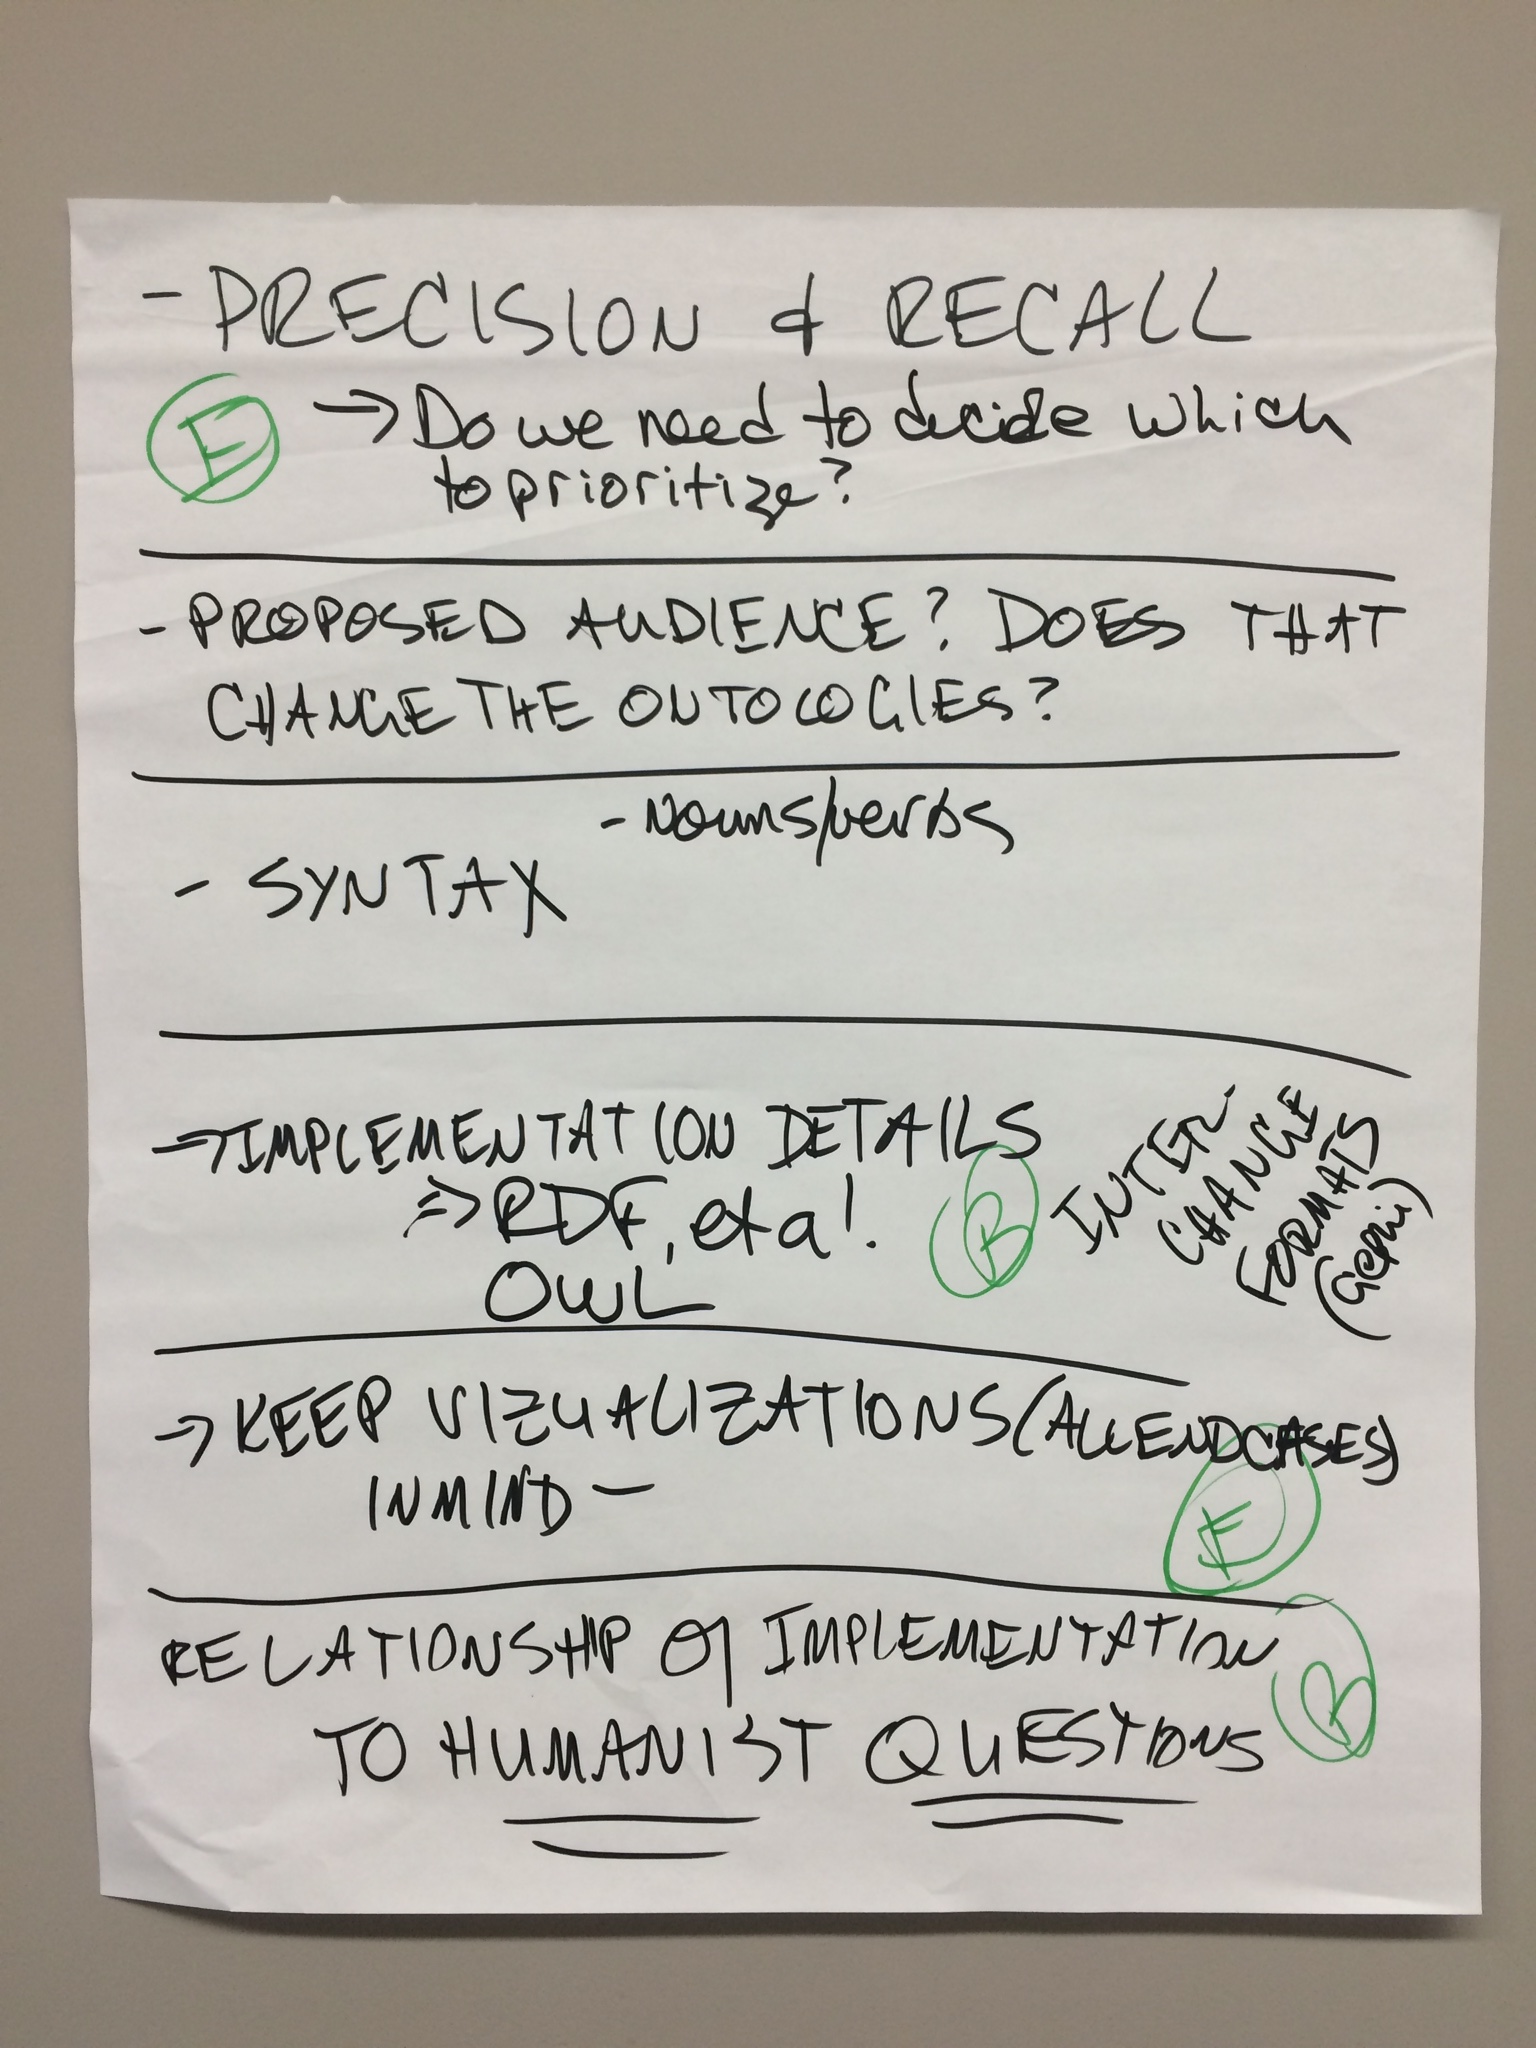 - PRECISION & RECALL
E
→ Do we need to decide which
to prioritize?
- PROPOSED AUDIENCE? DOES THAT
CHANGE THE ONTOLOGIES?
- Nouns/verbs
- SYNTAX
→ IMPLEMENTATION DETAILS
⇒ RDF, et al.
OWL
B
INTER-
CHANGE
FORMATS
(Gephi)
→ KEEP VIZUALIZATIONS (ALL END CASES)
IN MIND -
E
RELATIONSHIP of IMPLEMENTATION
TO HUMANIST QUESTIONS
B